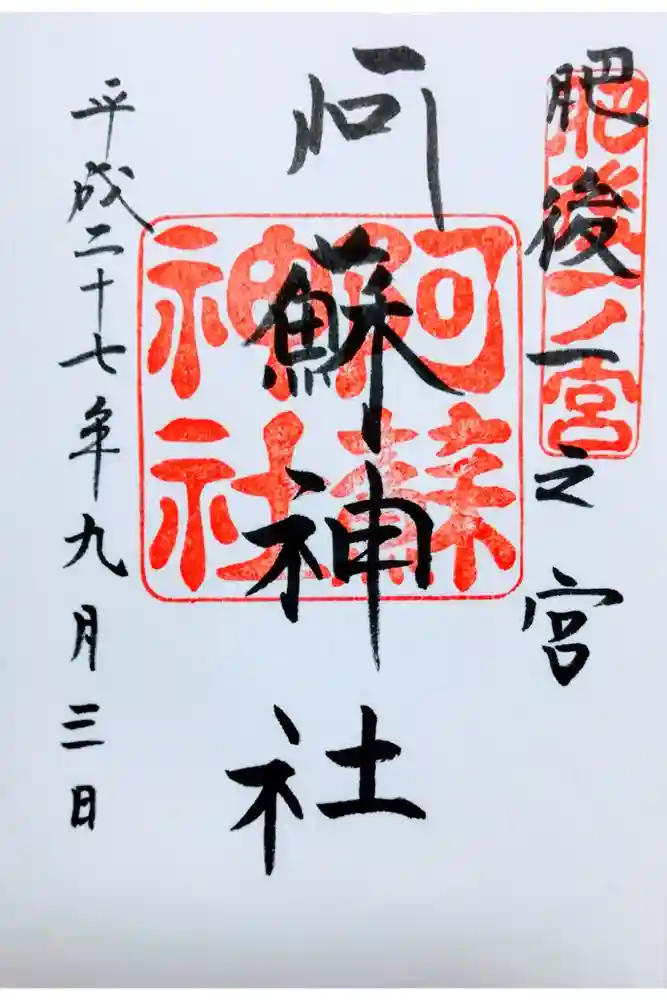 肥後一之宮
肥後一ノ宮
阿蘇神社
阿蘇神社
平成二十七年九月三日